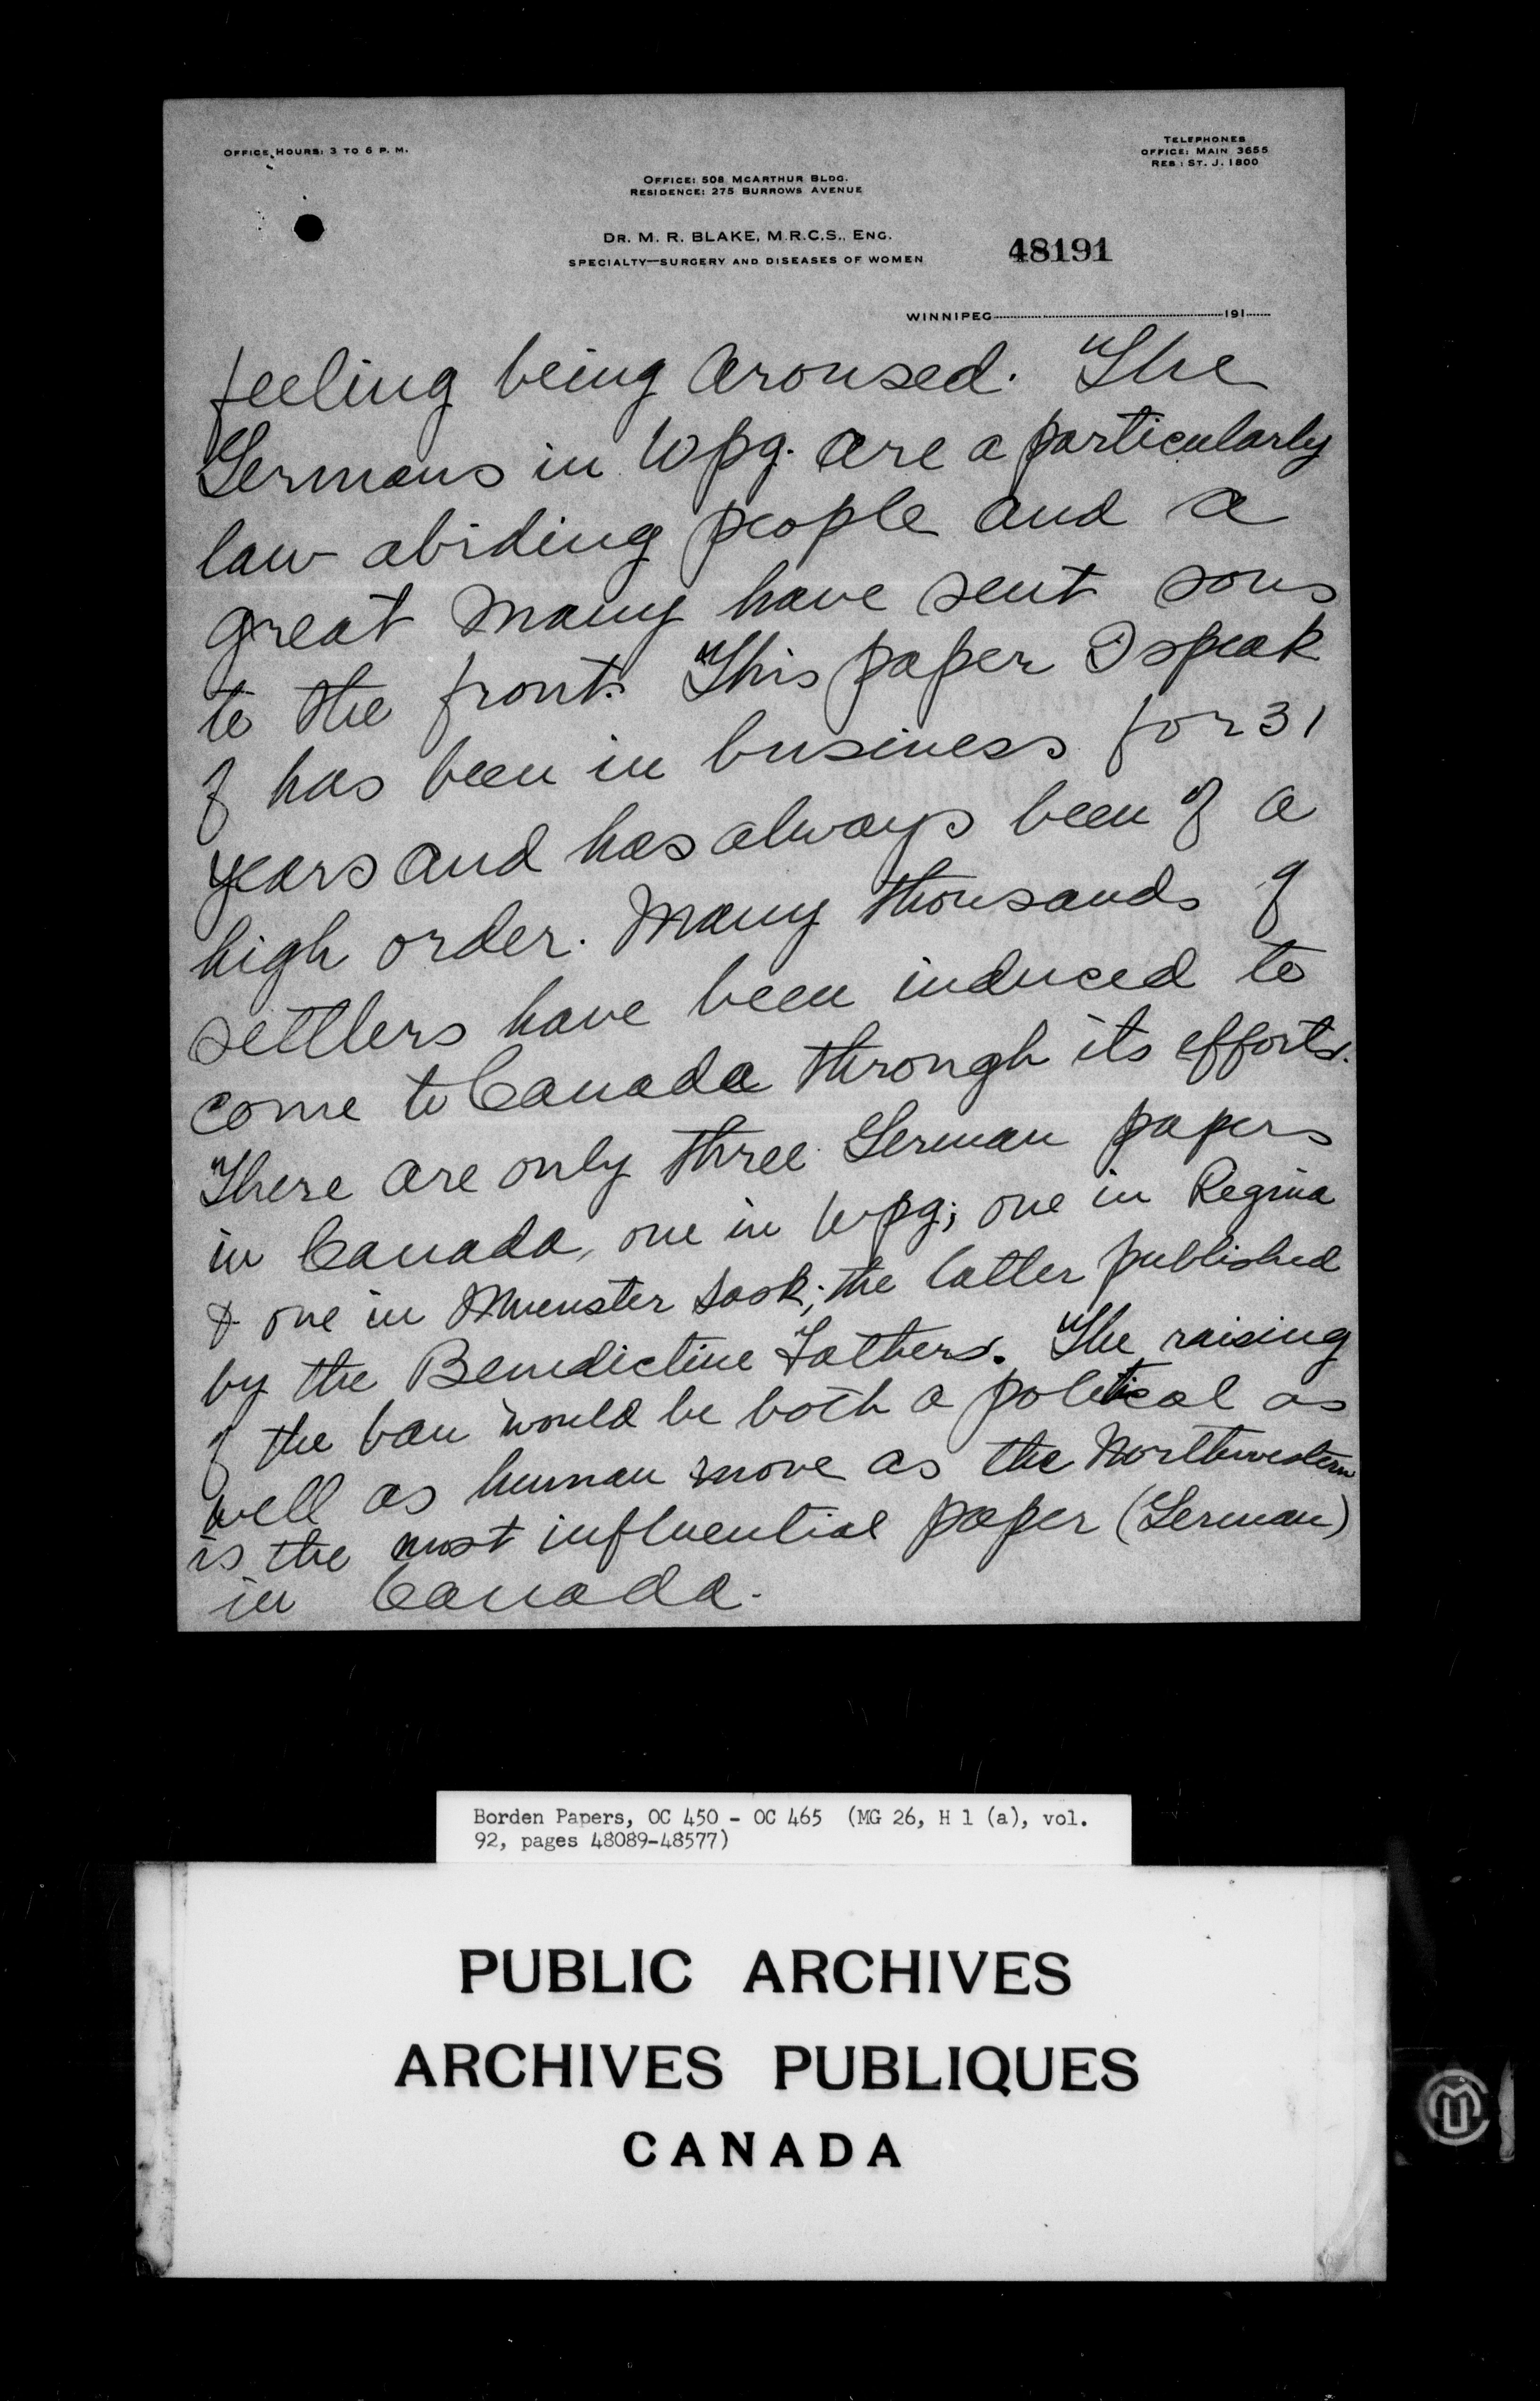 OFFICE HOURS: 3 TO 6 P. M.
TELEPHONES
OFFICE: MAIN 3655
RES: ST. J. 1800
OFFICE: 508 MCARTHUR BLDG.
RESIDENCE: 275 BURROWS AVENUE
DR. M. R. BLAKE, M.R.C.S., ENG.
SPECIALTY—SURGERY AND DISEASES OF WOMEN
48191
WINNIPEG 191
feeling being aroused. The
Germans in Wpg. are a particularly
law abiding people and a
great many have sent sons
to the front. This paper I speak
of has been in business for 31
years and has always been of a
high order. Many thousands of
settlers have been induced to
come to Canada through its efforts.
There are only three German papers
in Canada, one in Wpg; one in Regina
& one in Muenster Sask; the latter published
by the Benedictine Fathers. The raising
of the ban would be both a political as
well as human move as the Northwestern
is the most influential paper (German)
in Canada.
Borden Papers, OC 450 - OC 465 (MG 26, H 1 (a), vol.
92, pages 48089-48577)
PUBLIC ARCHIVES
ARCHIVES PUBLIQUES
CANADA